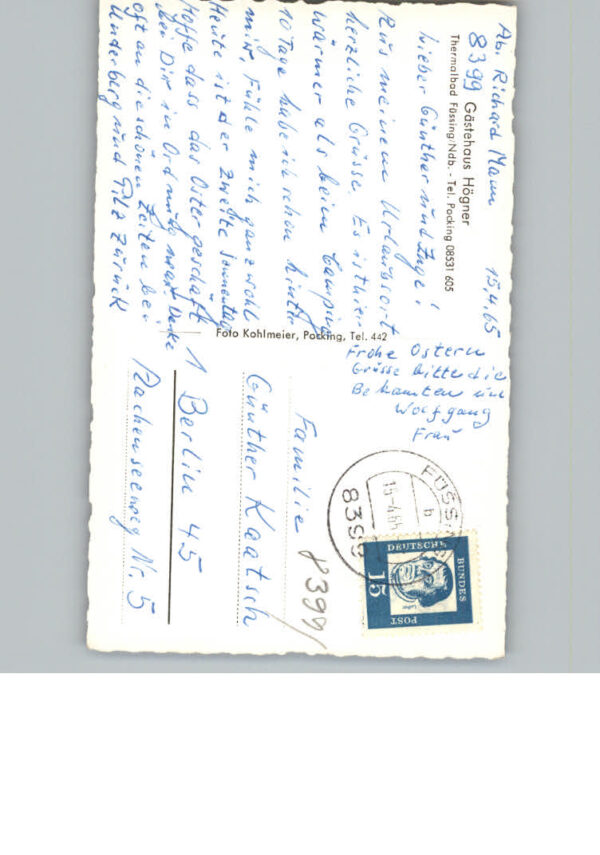 Ab. Richard Mann 15.4.65
8399 Gästehaus Högner
Thermalbad Füssing/Ndb. - Tel. Pocking 08531 605
Lieber Günther und Inge!
Aus meinem Urlaubsort
herzliche Grüsse. Es ist hier
wärmer als beim Camping
10 Tage habe ich schon hinter
mir, fühle mich ganz wohl
Heute ist der zweite Sonnentag
Hoffe dass das Ostergeschäft
bei Dir in Ordnung war. Denke
oft an die schönen Zeiten bei
Underberg und Pilz zurück
Foto Kohlmeier, Pocking, Tel. 442
Frohe Ostern
Grüsse bitte die
Bekannten und
Wolfgang
Frau
FÜSSING
15.-4.65
b
8399
DEUTSCHE
BUNDES
POST
15
Luther
Familie
8399/
Günther Kaatsch
1 Berlin 45
Machenseeweg Nr. 5